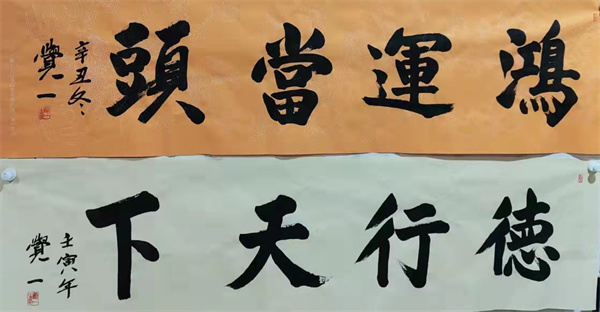 鴻運當頭
辛丑冬
覺一
德行天下
壬寅年
覺一